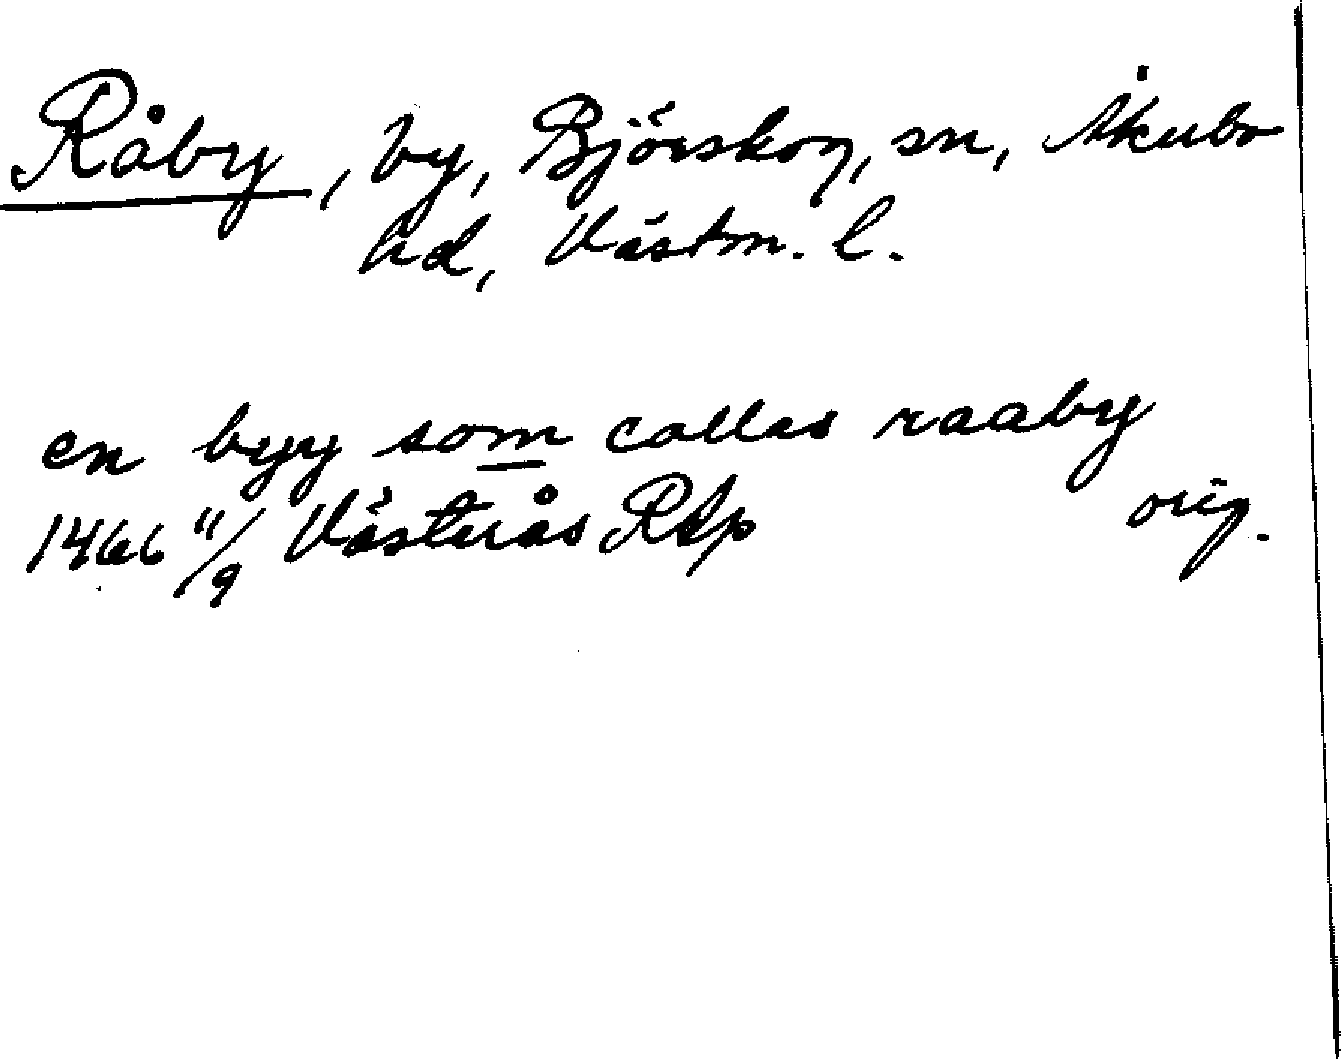 Råby, by, Björskog, sn, Åkerbo
hd, Västm. l.
en byy som callas raaby
1466 11/9 Västerås RAp orig.